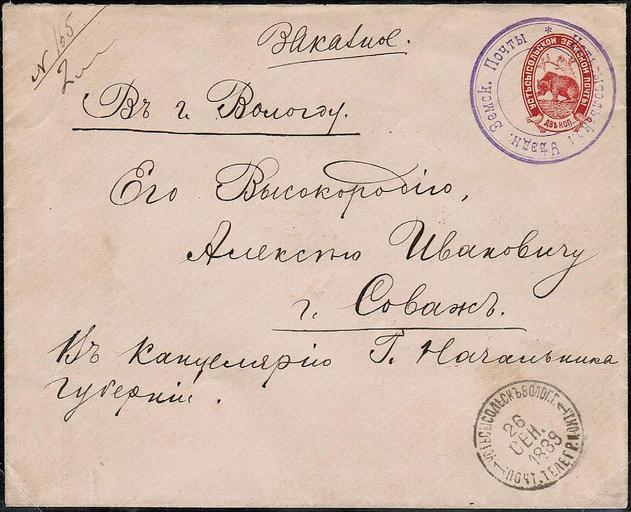 N 165
Заказное.
Въ г. Вологду.
Его Высокородію,
Алексѣю Ивановичу
г. Соважъ.
Въ Канцелярію Г. Начальника
Губерніи.
Устьсысольск. Уѣздн. Земск. Почты *
УСТЬСЫСОЛЬСКОЙ ЗЕМСКОЙ ПОЧТЫ
ДВѢ КОП.
УСТЬСЫСОЛЬСКЪ ВОЛОГ. Г.
26
СЕН.
1889
ПОЧТ. ТЕЛЕГР. КОНТ.